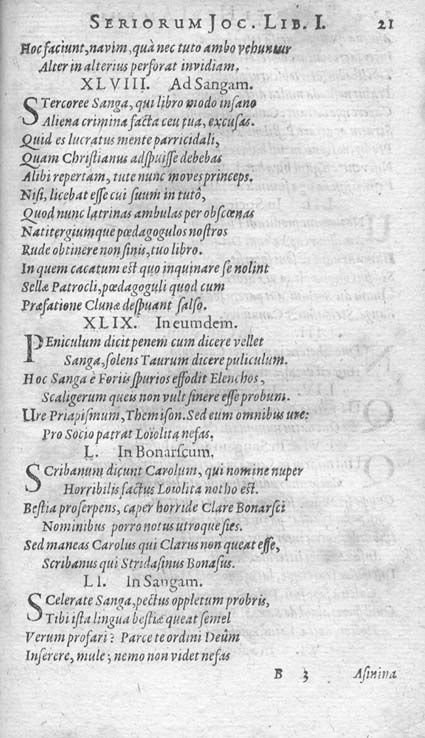 SERIORUM JOC. LIB. I. 21
Hoc faciunt, navim, quà nec tuto ambo vehuntur
Alter in alterius perforat invidiam.
XLVIII. Ad Sangam.
STercoree Sanga, qui libro modo insano
Aliena crimina facta ceu tua, excusas.
Quid es lucratus mente parricidali,
Quam Christianus adspuisse debebas
Alibi repertam, tute nunc moves princeps.
Nisi, licebat esse cui suum in tutô,
Quod nunc latrinas ambulas per obscœnas
Natitergiumque pœdagogulos nostros
Rude obtinere non sinis, tuo libro.
In quem cacatum est quo inquinare se nolint
Sellæ Patrocli, pœdagoguli quod cum
Præfatione Clunæ despuant salso.
XLIX. In eumdem.
PEniculum dicit penem cum dicere vellet
Sanga, solens Taurum dicere puliculum.
Hoc Sanga e Foriis spurios effodit Elenchos,
Scaligerum queis non vult sinere esse probum.
Ure Priapismum, Themison. Sed eum omnibus ure:
Pro Socio patrat Loïolita nefas.
L. In Bonarscum.
SCribanum dicunt Carolum, qui nomine nuper
Horribilis factus Loiolita notho est.
Bestia proserpens, caper horride Clare Bonarsci
Nominibus porro notus utroque sies.
Sed maneas Carolus qui Clarus non queat esse,
Scribanus qui Stridasinus Bonasus.
LI. In Sangam.
SCelerate Sanga, pectus oppletum probris,
Tibi ista lingua bestiæ queat semel
Verum profari? Parce te ordini Deûm
Inserere, mule; nemo non videt nefas
B 3 Asinina